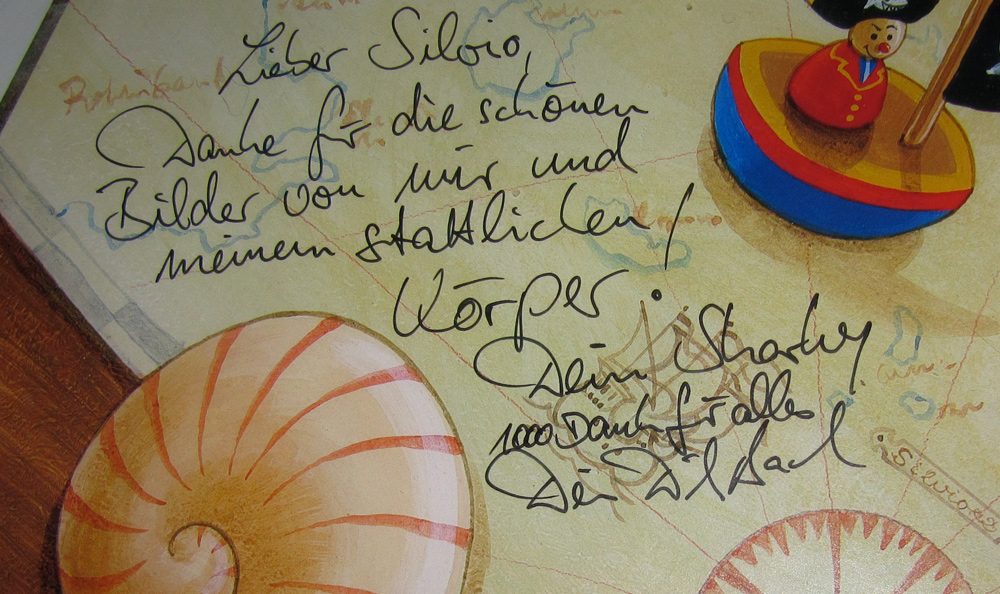 Lieber Silvio,
Danke für die schönen
Bilder von mir und
meinem stattlichen
Körper!
Dein Sharky
1000 Dank für alles
Dein